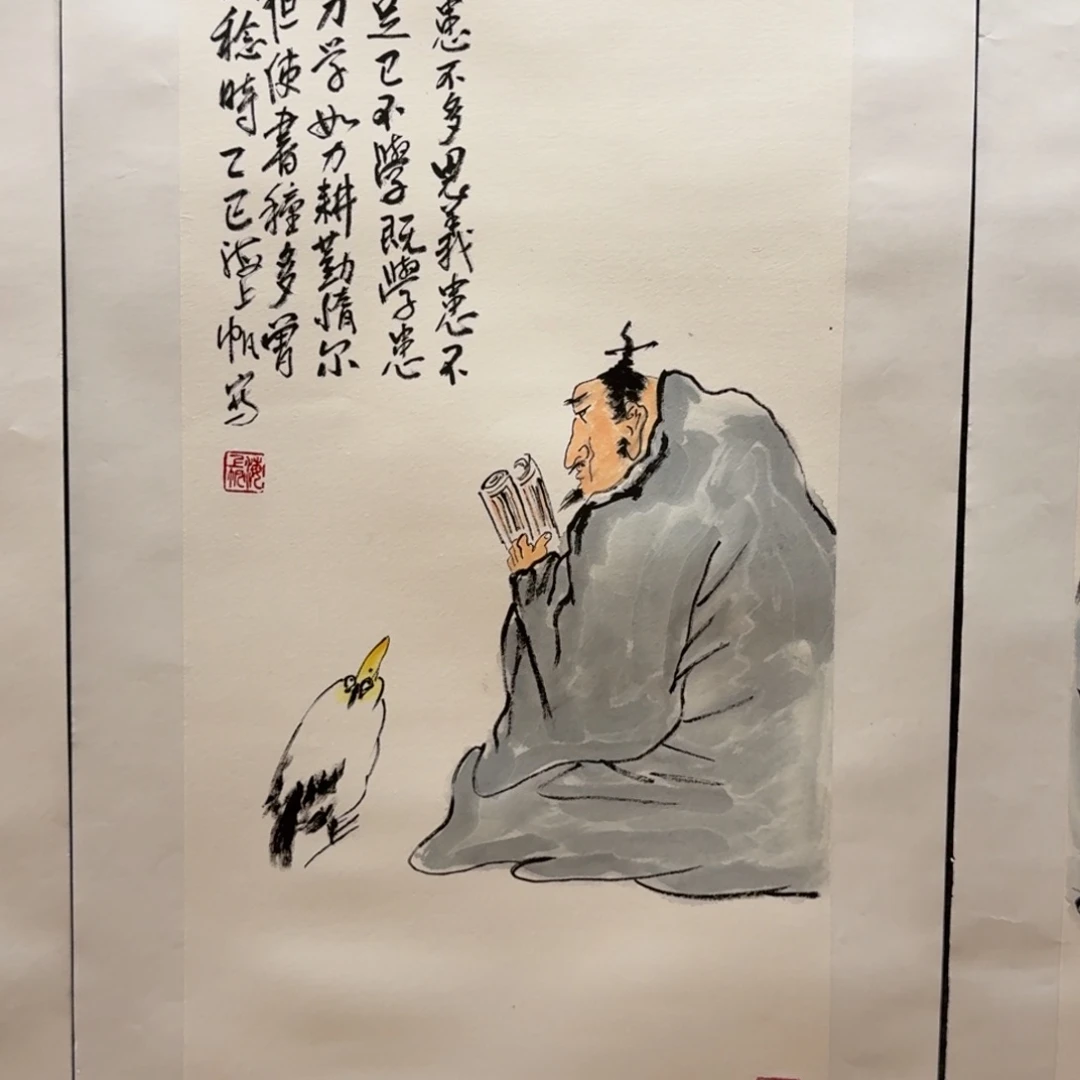 患不多思義患不
足已不學既學患
力学如力耕勤惰尔
但使書種多曾
稔時乙巳海上帆寫